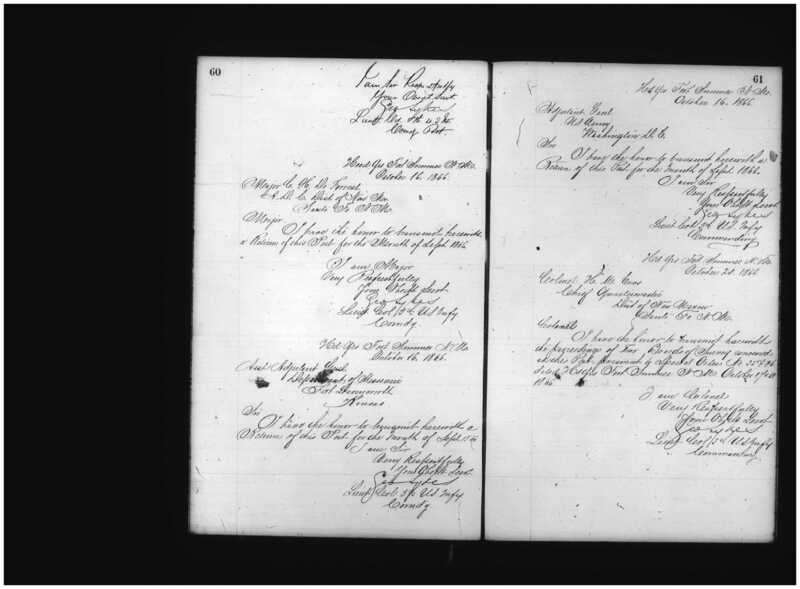 60
I am Sir Respectfully
Your Obedt Servt
Geo Sykes
Lieut Col 5th U.S. Inf
Comg Post
Head Qrs Fort Sumner N. Mo.
October 16. 1866.
Major C. H. De Forrest
A. D. C. Dist of New Mex
Santa Fe N. M.
Major
I have the honor to transmit herewith
a Return of this Post for the Month of Sept. 1866
I am Major
Very Respectfully
Your Obedt Servt
Geo Sykes
Lieut Col 5th U.S. Infy
Comdg
Hed Qrs Fort Sumner N. Mo
October 16. 1866.
Asst Adjutant Genl.
Department of Missouri
Fort Leavenworth
Kansas
Sir
I have the honor to transmit herewith a
Return of this Post for the Month of Sept.
I am Sir
Very Respectfully
Your Obedt Servt
Geo Sykes
Lieut Col 5th U.S. Infy
Comdg
61
Hed Qrs Fort Sumner N. Mo.
October 16. 1866
Adjutant Genl
U.S. Army
Washington D. C.
Sir
I have the honor to transmit herewith a
Return of this Post for the Month of Sept. 1866.
I am Sir
Very Respectfully
Your Obedt Servt
Geo Sykes
Lieut Col 5th U.S. Infy
Commanding
Hed Qrs Fort Sumner N. Mo.
October 20. 1866
Colonel H. M. Enos
Chief Quartermaster
Dist of New Mexico
Santa Fe N. Mo.
Colonel
I have the honor to transmit herewith
the proceedings of Boards of Survey convened
at this Post, pursuant to Special Orders No.
dated Hd Qrs Fort Sumner N. M. October
1866
I am Colonel
Very Respectfully
Your Obedt Servt
Geo Sykes
Lieut Col 5th U.S. Infy
Commanding